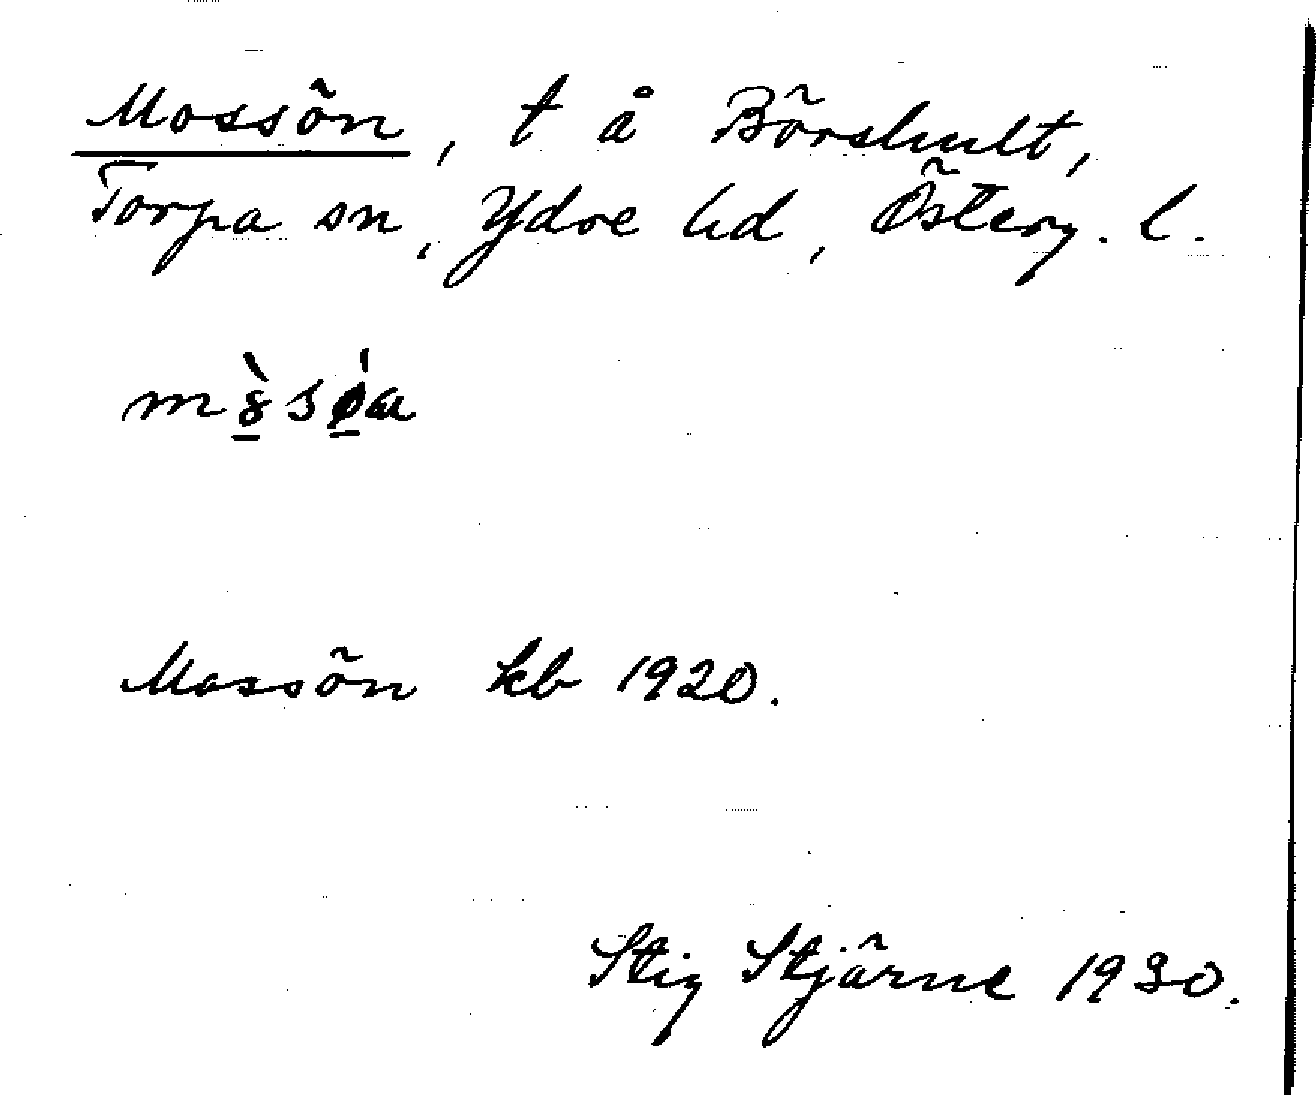 Mossön, t å Börshult,
Torpa sn, Ydre hd, Österg. l.
Mossön kb 1920.
Stig Stjärne 1930.